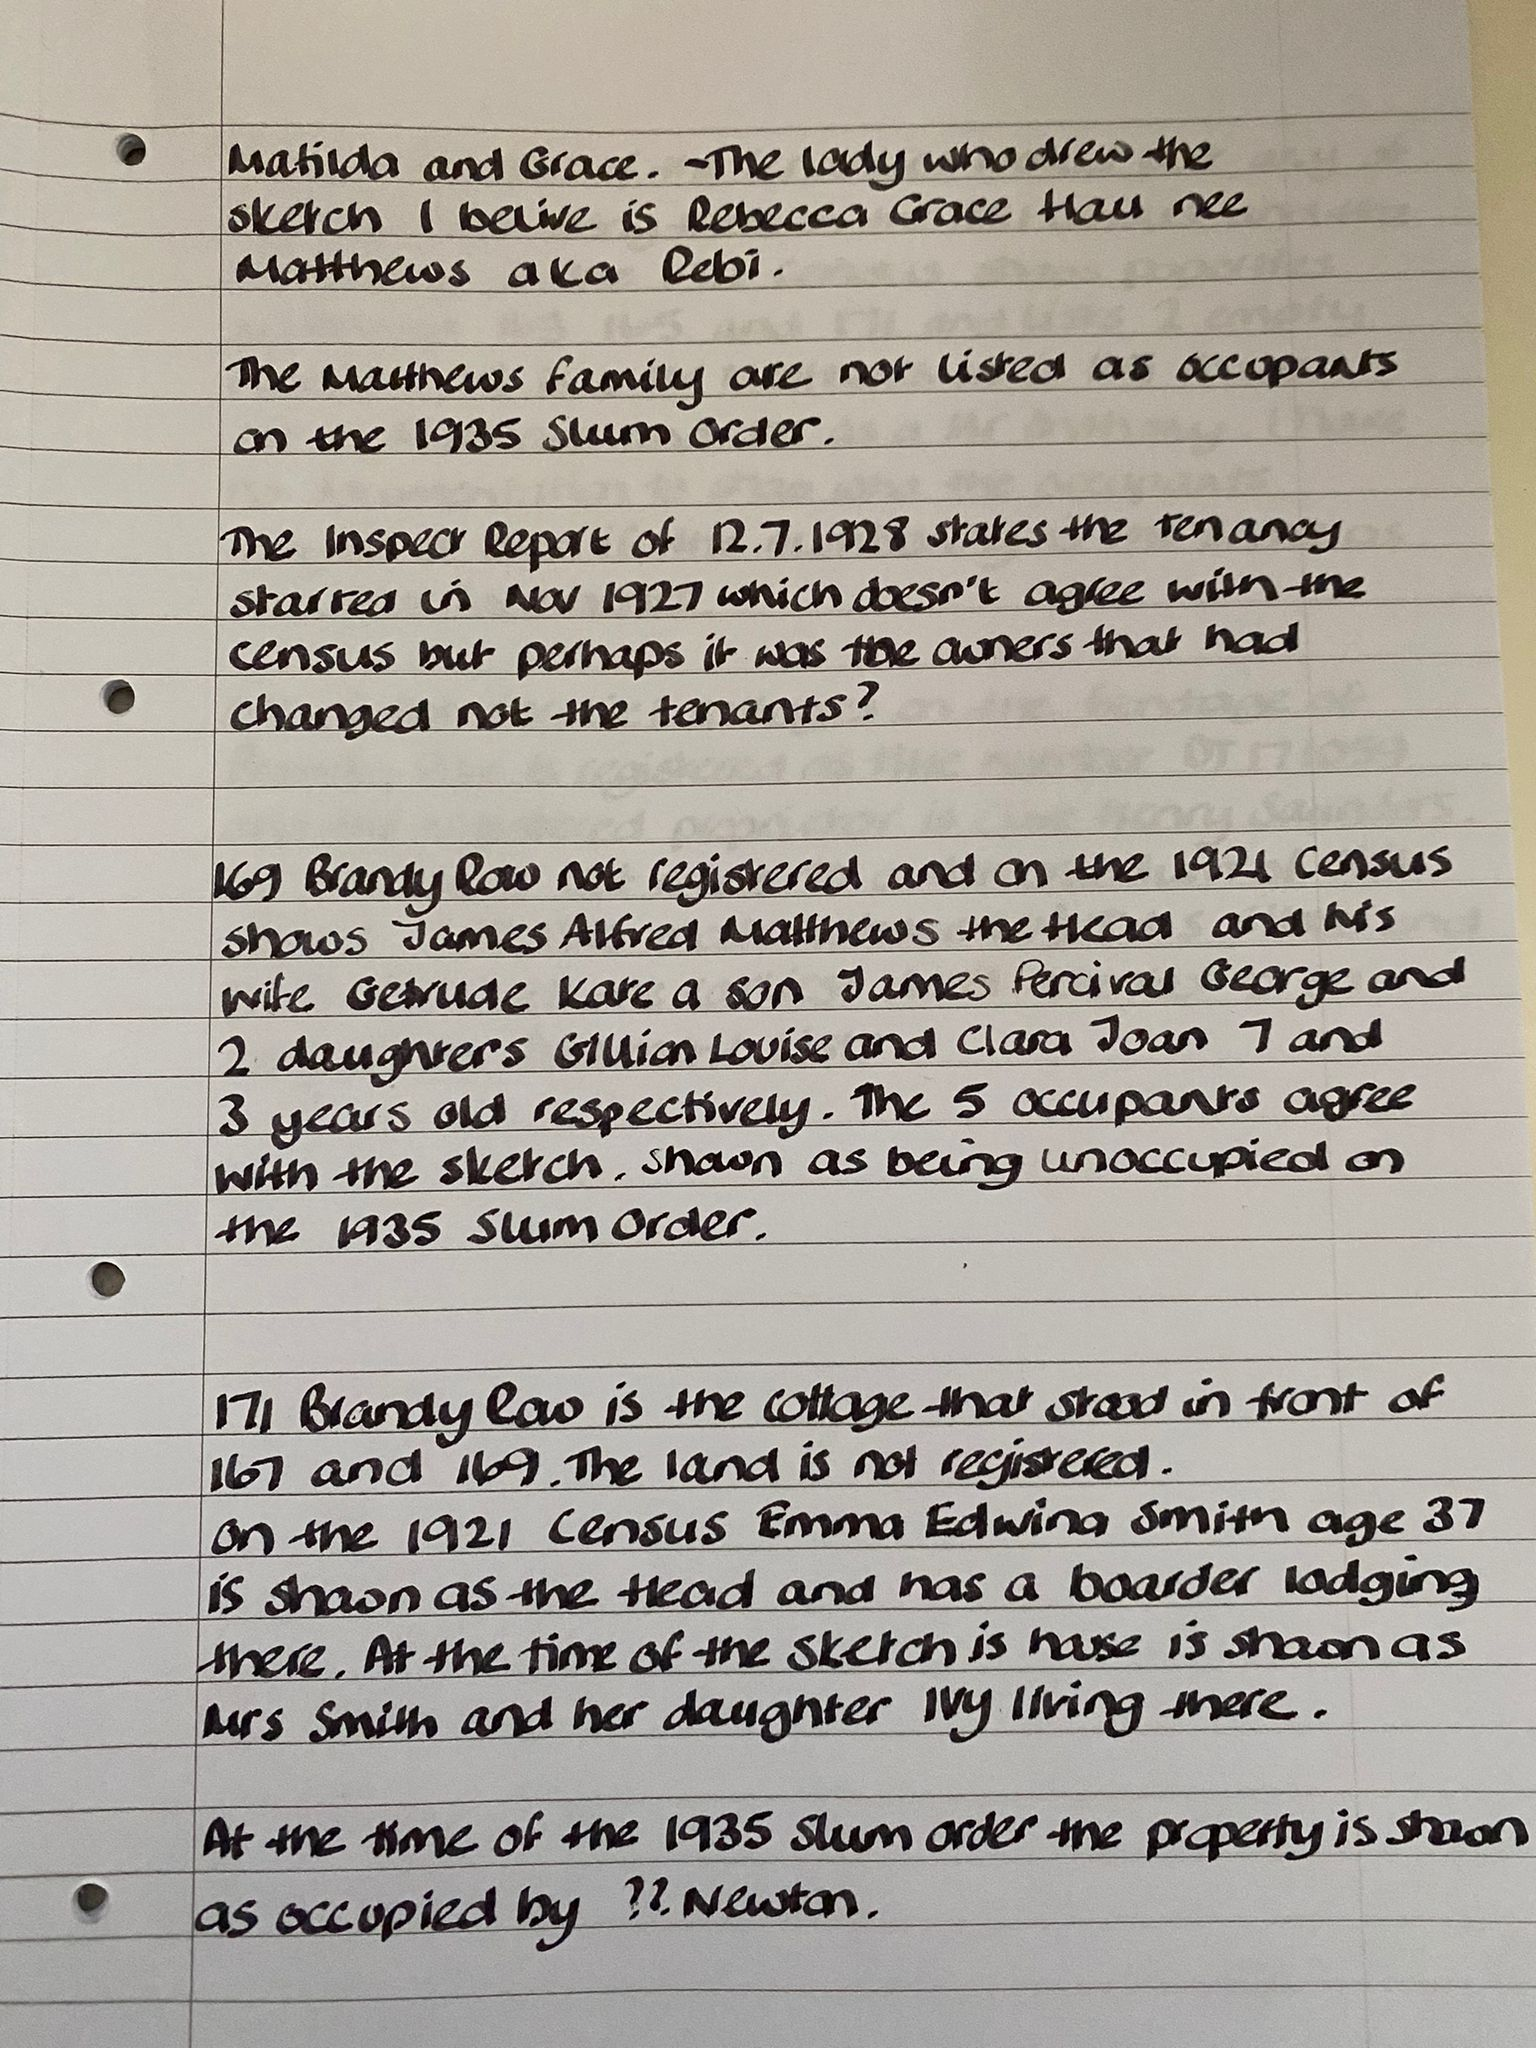 Matilda and Grace. - The lady who drew the
sketch I belive is Rebecca Grace Hall nee
Matthews aka Rebi.
The Matthews family are not listed as occupants
on the 1935 Slum Order.
The Inspect Report of 12.7.1928 states the tenancy
started in Nov 1927 which doesn't agree with the
census but perhaps it was the owners that had
changed not the tenants?
169 Brandy Row not registered and on the 1921 Census
shows James Alfred Matthews the Head and his
wife Getrude Kate a son James Percival George and
2 daughters Gillian Louise and Clara Joan 7 and
3 years old respectively. The 5 occupants agree
with the sketch. Shown as being unoccupied on
the 1935 Slum Order.
171 Brandy Row is the cottage that stood in front of
167 and 169. The land is not registered.
On the 1921 Census Emma Edwina Smith age 37
is shown as the Head and has a boarder lodging
there. At the time of the sketch is house is shown as
Mrs Smith and her daughter Ivy living there.
At the time of the 1935 Slum Order the property is shown
as occupied by ??. Newton.